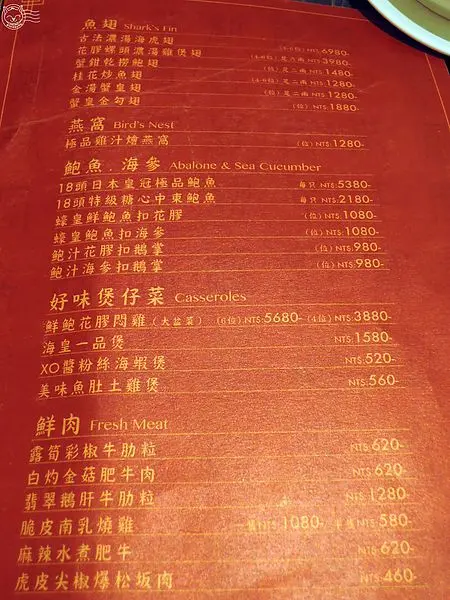 魚翅 Shark's Fin
古法濃湯海虎翅 (4-6位) NT$:6980-
花膠螺頭濃湯雞煲翅 (4-6位) 足六兩 NT$:3980-
蟹鉗乾撈鮑翅 (位) 足二兩 NT$:1480-
桂花炒魚翅 (4-6位) 足二兩 NT$:1280-
金湯蟹皇翅 (位) 足二兩 NT$:1280-
蟹皇金勾翅 (位) NT$:1880-
燕窩 Bird's Nest
極品雞汁燴燕窩 (位) NT$:1280-
鮑魚.海參 Abalone & Sea Cucumber
18頭日本皇冠極品鮑魚 每只 NT$:5380-
18頭特級糖心中東鮑魚 每只 NT$:2180-
蠔皇鮮鮑魚扣花膠 (位) NT$:1080-
蠔皇鮑魚扣海參 (位) NT$:1080-
鮑汁花膠扣鵝掌 (位) NT$:980-
鮑汁海參扣鵝掌 (位) NT$:980-
好味煲仔菜 Casseroles
鮮鮑花膠悶雞(大盆菜) (6位) NT$:5680- (4位) NT$:3880-
海皇一品煲 NT$:1580-
XO醬粉絲海蝦煲 NT$:520-
美味魚肚土雞煲 NT$:560-
鮮肉 Fresh Meat
露筍彩椒牛肋粒 NT$:620-
白灼金菇肥牛肉 NT$:620-
翡翠鵝肝牛肋粒 NT$:1280-
脆皮南乳燒雞 NT$:1080- 半隻 NT$:580-
麻辣水煮肥牛 NT$:620-
虎皮尖椒爆松坂肉 NT$:460-